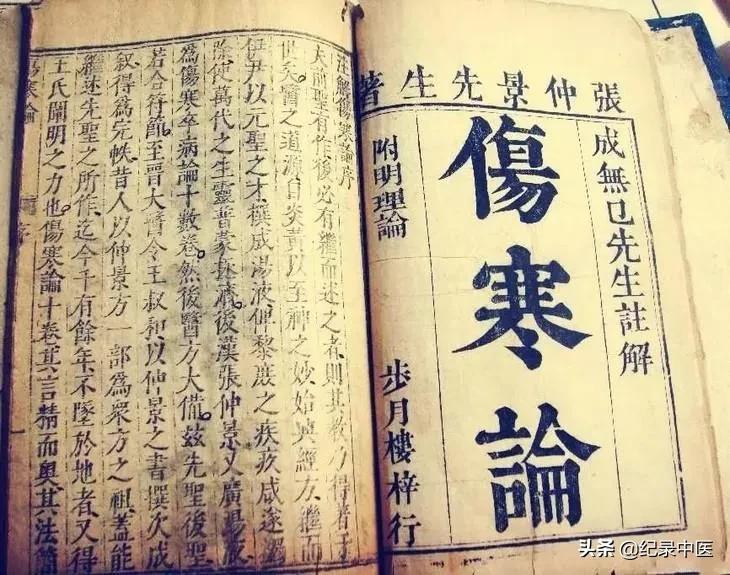 張仲景先生著
成無已先生註解
傷寒論
附明理論
步月樓梓行
註解傷寒論序
夫前聖有作後必有繼而述之者則其教乃得著于
世矣。醫之道源自炎黃以至神之妙始興經方繼而
伊尹以元聖之才撰成湯液俾黎庶之疾疚咸遂蠲
除使萬代之生靈普蒙拯濟。後漢張仲景又廣湯液
為傷寒卒病論十數卷。然後醫方大備。茲先聖後聖
若合符節。至晉大醫令王叔和以仲景之書撰次成
敘得為完帙昔人以仲景方一部為眾方之祖。蓋能
繼述先聖之所作。迄今千有餘年。不墜於地者又得
王氏闡明之力也。傷寒論十卷其言精而奧其法簡
傷寒論 序
头条 @纪录中医